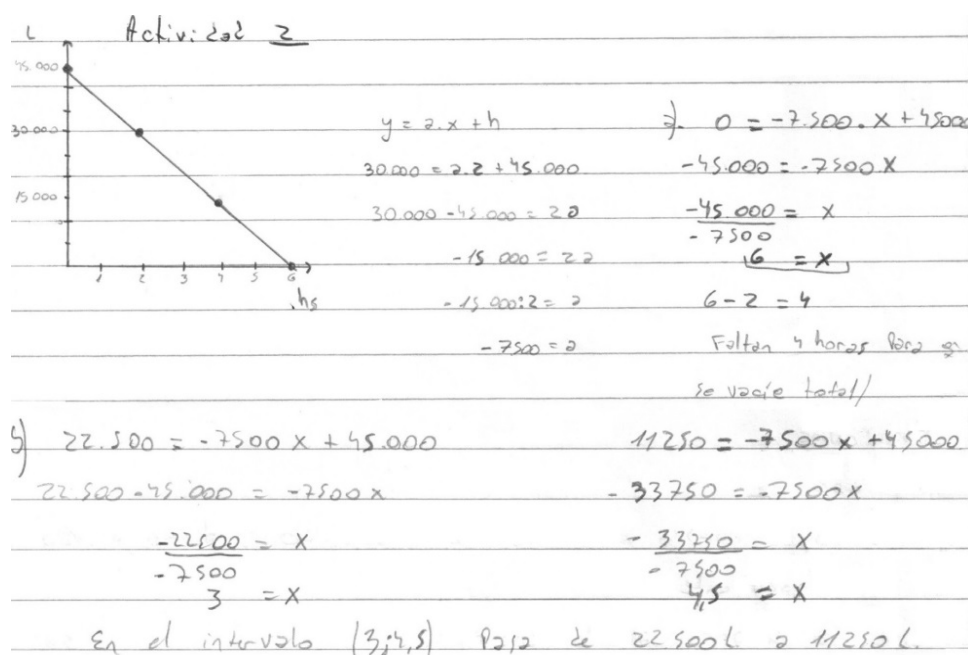 Actividad 2
L
45.000
30.000
15.000
1 2 3 4 5 6
hs
y = a.x + h
30.000 = a.2 + 45.000
30.000 - 45.000 = 2a
-15.000 = 2a
-15.000:2 = a
-7500 = a
a). 0 = -7.500.x + 45000
-45.000 = -7500x
-45.000 = x
-7500
6 = x
6 - 2 = 4
Faltan 4 horas para q
se vacíe total/
b) 22.500 = -7500x + 45.000
22.500 - 45.000 = -7500x
-22500 = x
-7500
3 = x
11250 = -7500x + 45000
-33750 = -7500x
-33750 = x
-7500
4,5 = x
En el intervalo (3;4,5) pasa de 22500L a 11250L.